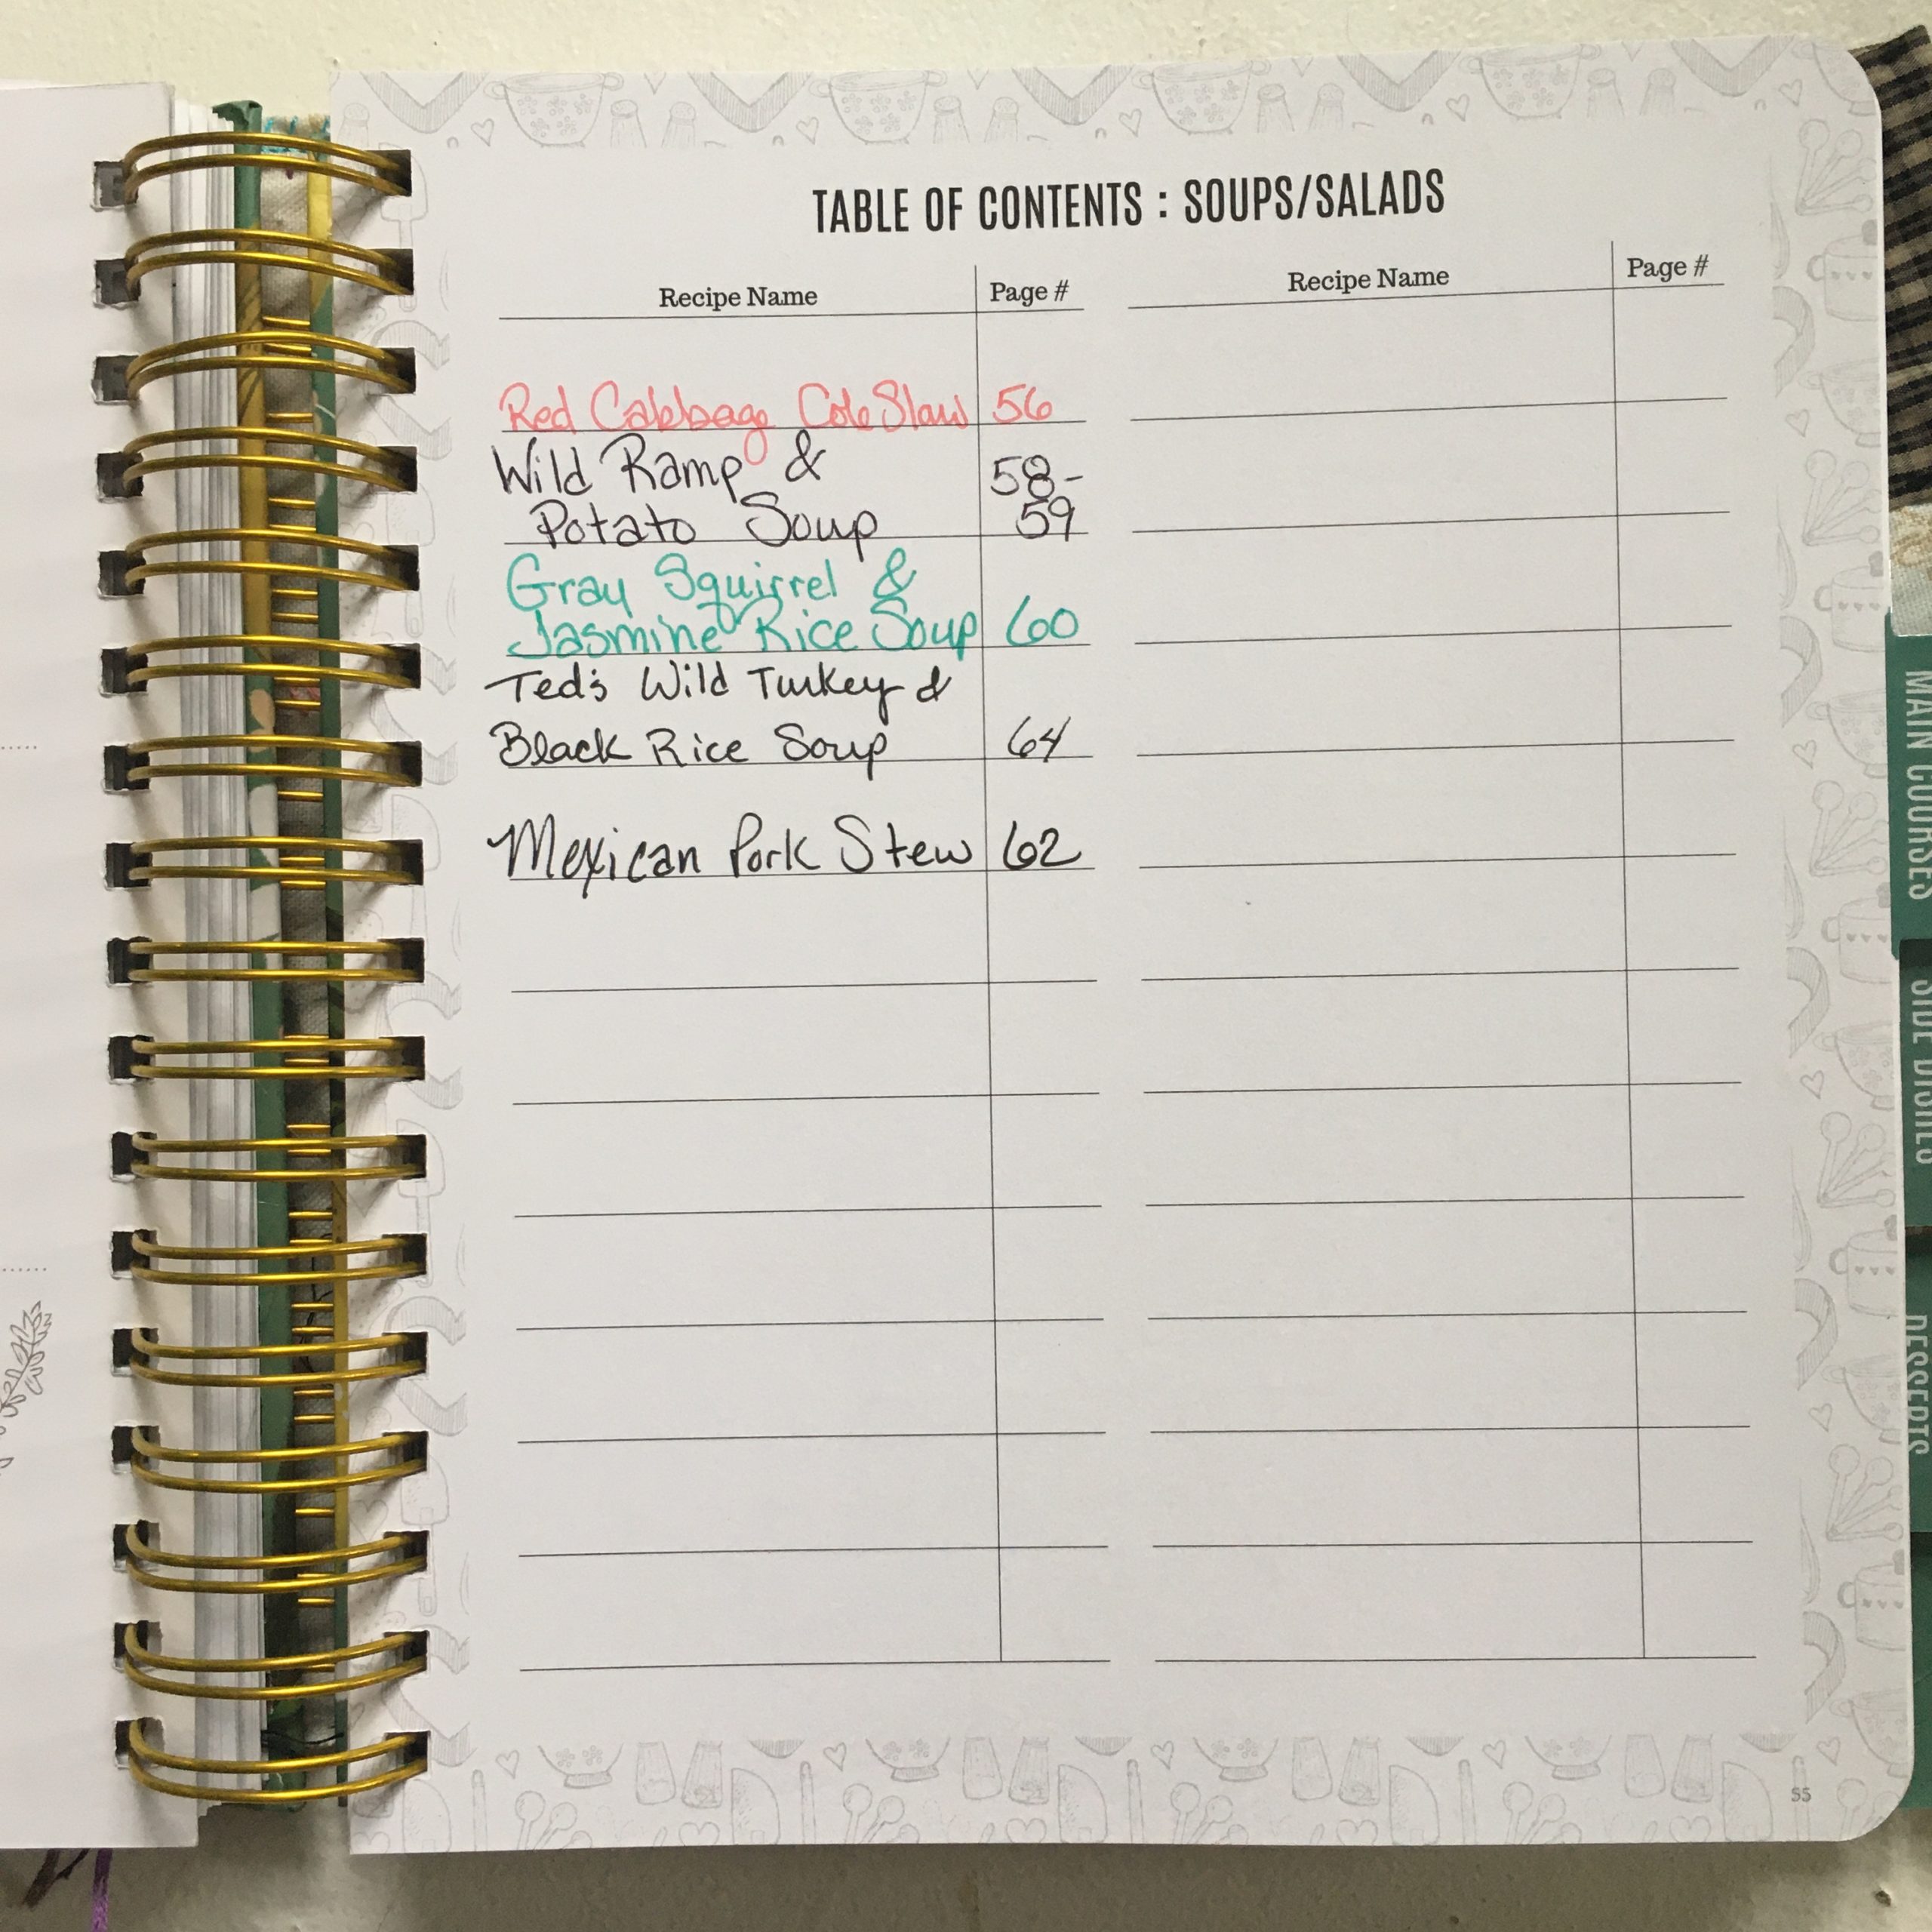 TABLE OF CONTENTS : SOUPS/SALADS
Recipe Name Page # Recipe Name Page #
Red Cabbage Cole Slaw 56
Wild Ramp & 58-
Potato Soup 59
Gray Squirrel &
Jasmine Rice Soup 60
Ted's Wild Turkey &
Black Rice Soup 64
Mexican Pork Stew 62
55
MAIN COURSES
SIDE DISHES
DESSERTS